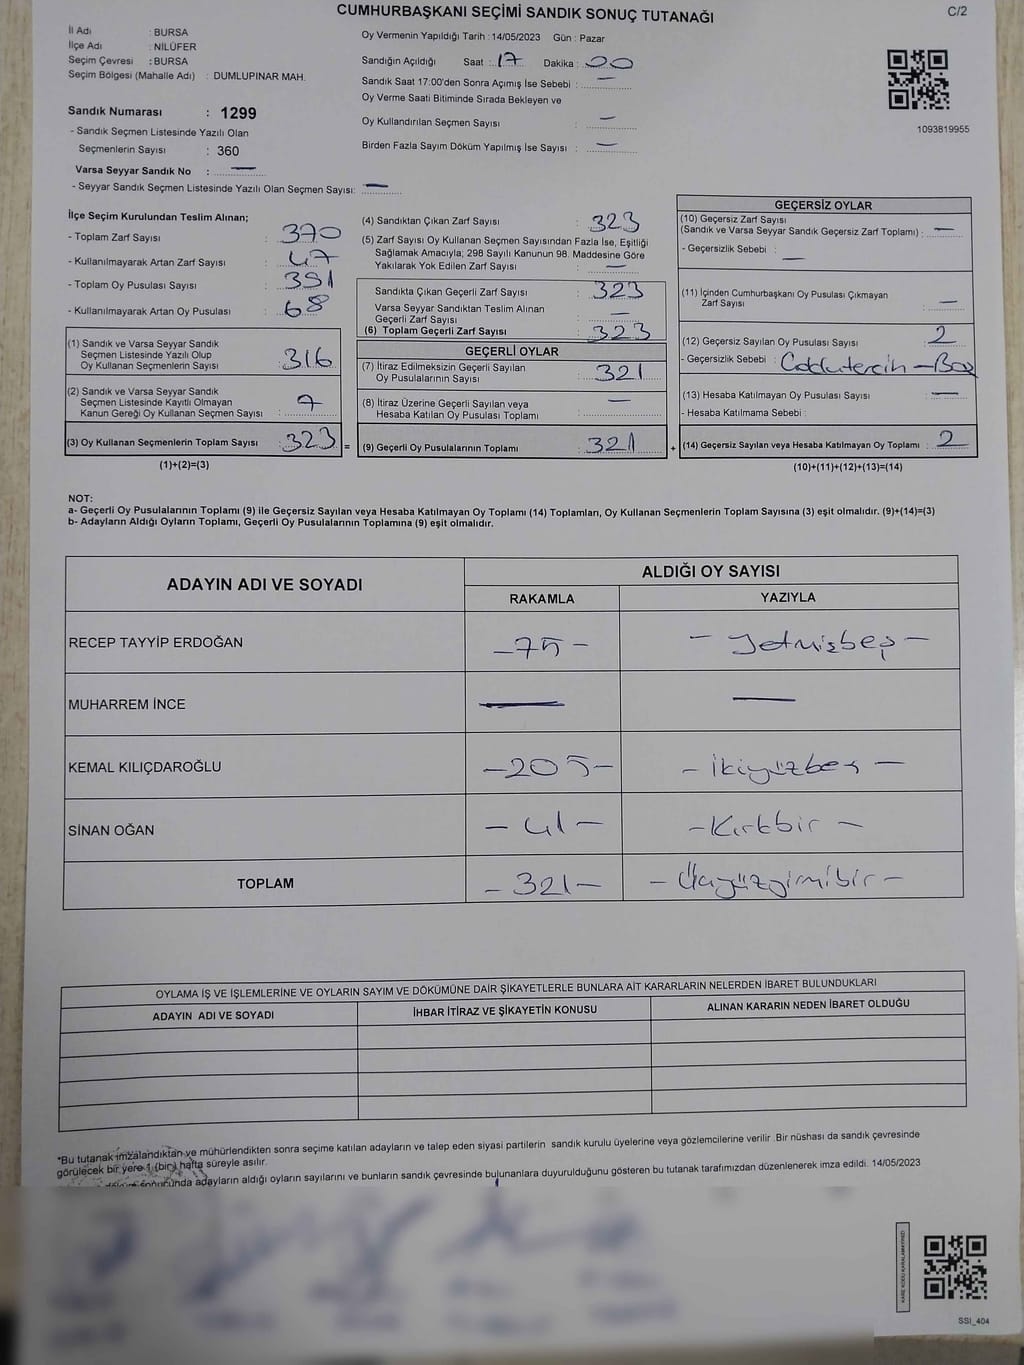 CUMHURBAŞKANI SEÇİMİ SANDIK SONUÇ TUTANAĞI
C/2
İl Adı : BURSA
İlçe Adı : NİLÜFER
Seçim Çevresi : BURSA
Seçim Bölgesi (Mahalle Adı) : DUMLUPINAR MAH.
Sandık Numarası : 1299
- Sandık Seçmen Listesinde Yazılı Olan
Seçmenlerin Sayısı : 360
Varsa Seyyar Sandık No : —
- Seyyar Sandık Seçmen Listesinde Yazılı Olan Seçmen Sayısı: —
Oy Vermenin Yapıldığı Tarih : 14/05/2023 Gün : Pazar
Sandığın Açıldığı Saat : 17 Dakika : 00
Sandık Saat 17:00'den Sonra Açımış İse Sebebi : —
Oy Verme Saati Bitiminde Sırada Bekleyen ve
Oy Kullandırılan Seçmen Sayısı : —
Birden Fazla Sayım Döküm Yapılmış İse Sayısı : —
1093819955
İlçe Seçim Kurulundan Teslim Alınan;
- Toplam Zarf Sayısı : 370
- Kullanılmayarak Artan Zarf Sayısı : 47
- Toplam Oy Pusulası Sayısı : 391
- Kullanılmayarak Artan Oy Pusulası : 68
(1) Sandık ve Varsa Seyyar Sandık
Seçmen Listesinde Yazılı Olup
Oy Kullanan Seçmenlerin Sayısı : 316
(2) Sandık ve Varsa Seyyar Sandık
Seçmen Listesinde Kayıtlı Olmayan
Kanun Gereği Oy Kullanan Seçmen Sayısı : 7
(3) Oy Kullanan Seçmenlerin Toplam Sayısı : 323 =
(1)+(2)=(3)
(4) Sandıktan Çıkan Zarf Sayısı : 323
(5) Zarf Sayısı Oy Kullanan Seçmen Sayısından Fazla İse, Eşitliği
Sağlamak Amacıyla; 298 Sayılı Kanunun 98. Maddesine Göre
Yakılarak Yok Edilen Zarf Sayısı : —
Sandıkta Çıkan Geçerli Zarf Sayısı : 323
Varsa Seyyar Sandıktan Teslim Alınan
Geçerli Zarf Sayısı : —
(6) Toplam Geçerli Zarf Sayısı : 323
GEÇERLİ OYLAR
(7) İtiraz Edilmeksizin Geçerli Sayılan
Oy Pusulalarının Sayısı : 321
(8) İtiraz Üzerine Geçerli Sayılan veya
Hesaba Katılan Oy Pusulası Toplamı : —
(9) Geçerli Oy Pusulalarının Toplamı : 321 +
GEÇERSİZ OYLAR
(10) Geçersiz Zarf Sayısı
(Sandık ve Varsa Seyyar Sandık Geçersiz Zarf Toplamı) : —
- Geçersizlik Sebebi : —
(11) İçinden Cumhurbaşkanı Oy Pusulası Çıkmayan
Zarf Sayısı : —
(12) Geçersiz Sayılan Oy Pusulası Sayısı : 2
- Geçersizlik Sebebi :
(13) Hesaba Katılmayan Oy Pusulası Sayısı : —
- Hesaba Katılmama Sebebi :
(14) Geçersiz Sayılan veya Hesaba Katılmayan Oy Toplamı : 2
(10)+(11)+(12)+(13)=(14)
NOT:
a- Geçerli Oy Pusulalarının Toplamı (9) ile Geçersiz Sayılan veya Hesaba Katılmayan Oy Toplamı (14) Toplamları, Oy Kullanan Seçmenlerin Toplam Sayısına (3) eşit olmalıdır. (9)+(14)=(3)
b- Adayların Aldığı Oyların Toplamı, Geçerli Oy Pusulalarının Toplamına (9) eşit olmalıdır.
ADAYIN ADI VE SOYADI
ALDIĞI OY SAYISI
RAKAMLA YAZIYLA
RECEP TAYYİP ERDOĞAN -75- - Yetmişbeş -
MUHARREM İNCE — —
KEMAL KILIÇDAROĞLU -205- - İkiyüzbeş -
SİNAN OĞAN - 41 - -Kırkbir -
TOPLAM - 321 - - Üçyüzyirmibir -
OYLAMA İŞ VE İŞLEMLERİNE VE OYLARIN SAYIM VE DÖKÜMÜNE DAİR ŞİKAYETLERLE BUNLARA AİT KARARLARIN NELERDEN İBARET BULUNDUKLARI
ADAYIN ADI VE SOYADI İHBAR İTİRAZ VE ŞİKAYETİN KONUSU ALINAN KARARIN NEDEN İBARET OLDUĞU
*Bu tutanak imzalandıktan ve mühürlendikten sonra seçime katılan adayların ve talep eden siyasi partilerin sandık kurulu üyelerine veya gözlemcilerine verilir .Bir nüshası da sandık çevresinde
görülecek bir yere 1 (bir) hafta süreyle asılır.
sonucunda adayların aldığı oyların sayılarını ve bunların sandık çevresinde bulunanlara duyurulduğunu gösteren bu tutanak tarafımızdan düzenlenerek imza edildi. 14/05/2023
KARE KODU KARALAMAYINIZ!
SSI_404